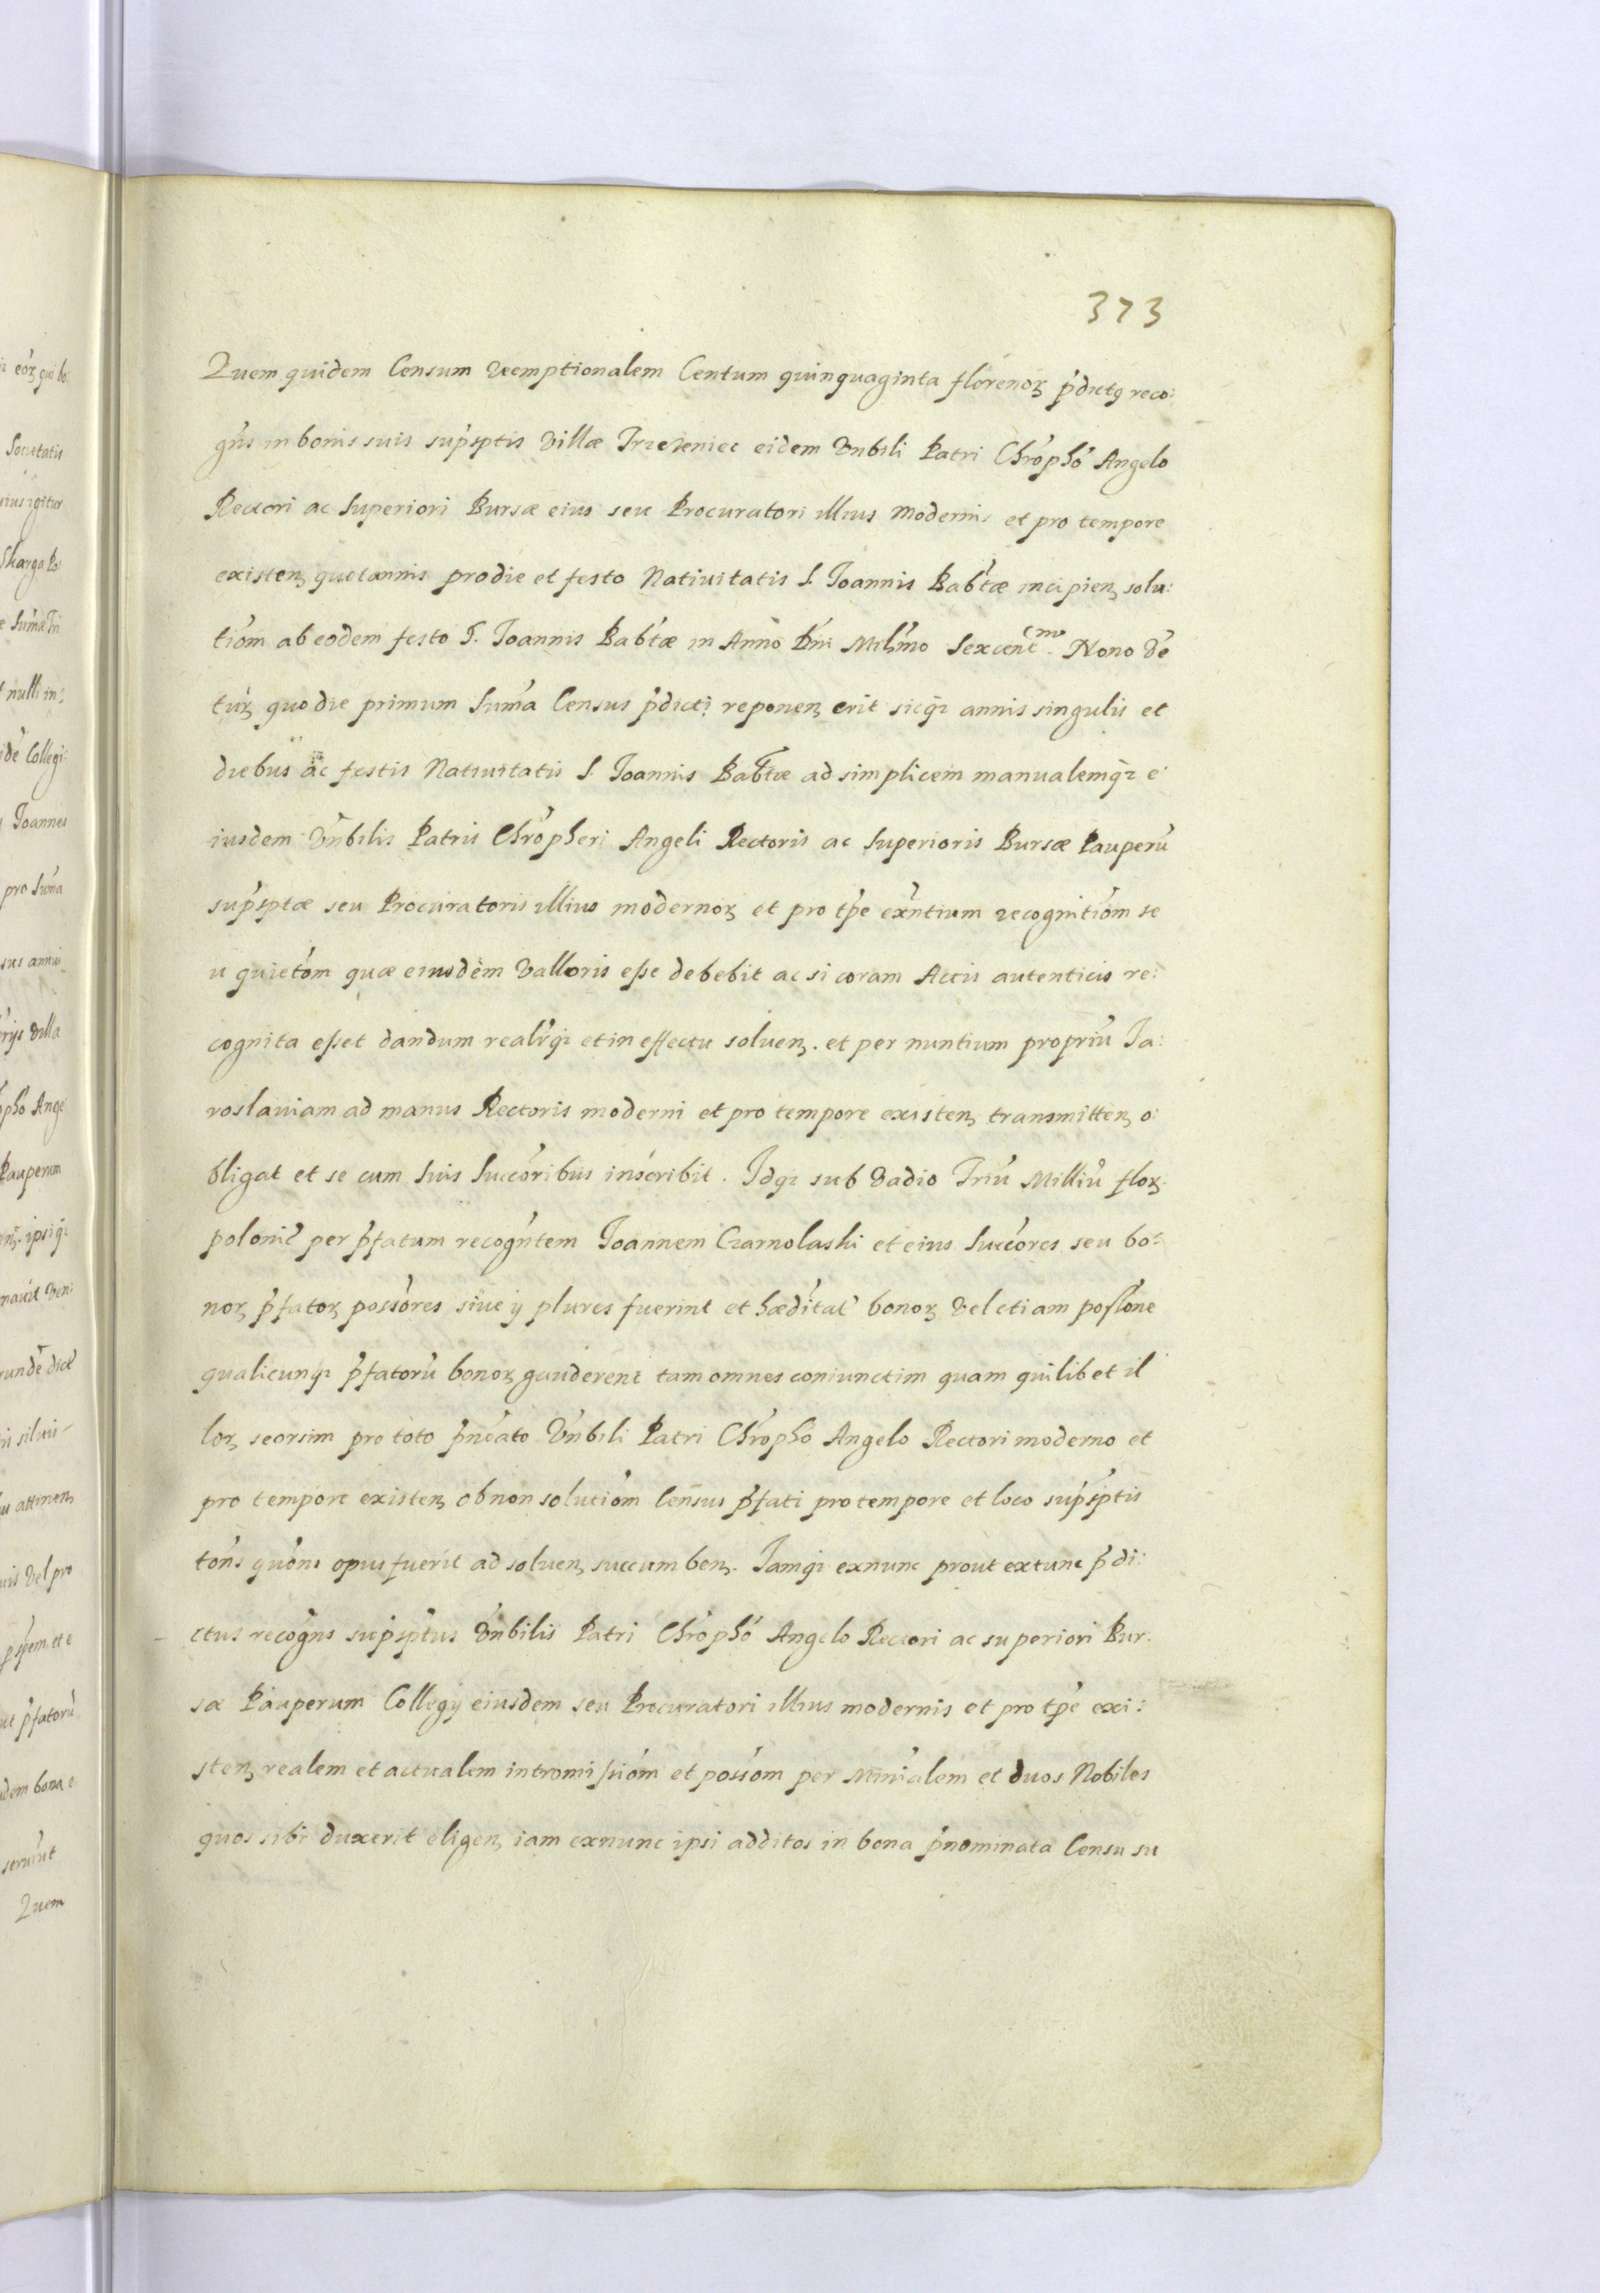 373
Quem quidem Censum reemptionalem Centum quinquaginta florenoꝝ p̃dictꝰ reco:
gñs in bonis suis sup̃sptis Villæ Trzebeniec eidem Vnbili Patri Chrõphõ Angelo
Rectori ac Superiori Bursæ eius seu Procuratori illius modernis et pro tempore
existenꝫ quotannis pro die et festo Natiuitatis S. Joannis Babtæ incipienꝫ solu:
tiõm ab eodem festo S. Joannis Babtæ in Anno Dñi Mill̃mo Sexcent.mo Nono de
turꝫ quo die primum Suma Census p̃dicti reponenꝫ erit sicqꝫ annis singulis et
diebus ac festis Natiuitatis S. Joannis Babtæ ad simplicem manualemqꝫ e:
iusdem Vñbilis Patris Chrõpheri Angeli Rectoris ac Superioris Bursæ Pauperũ
sup̃sptæ seu Procuratoris illius modernoꝝ et pro tp̃e exñtium recognitiõm se
u quietõm quæ eiusdem Valloris esse debebit ac si coram Actis autenticis re:
cognita esset dandum realr̃qꝫ et in effectu soluenꝫ. et per nuntium propriũ Ja:
roslauiam ad manus Rectoris moderni et pro tempore existenꝫ transmittenꝫ o:
bligat et se cum suis Succõribus inscribit. Idqꝫ sub Vadio Triũ Milliũ floꝝ.
polonic̃ per p̃fatum recogñtem Joannem Czarnolaski et eius Succõres seu bo:
noꝝ p̃fatoꝝ possõres siue ij plures fuerint et hæditaẽ bonoꝝ Vel etiam possõne
qualicunqꝫ p̃fatorũ bonoꝝ gauderent tam omnes coniunctim quam quilibet il
loꝝ seorsim pro toto p̃nõato Vñbili Patri Chrõphõ Angelo Rectori moderno et
pro tempore existenꝫ ob non solutiõm Census p̃fati pro tempore et loco sup̃sptis
tõns quõns opus fuerit ad soluenꝫ succumbenꝫ. Jamqꝫ exnunc prout extunc p̃di:
ctus recogñs sup̃sptus Vñbilis Patri Chrõphõ Angelo Rectori ac superiori Bur:
sæ Pauperum Collegij eiusdem seu Procuratori illius modernis et pro tp̃e exi:
stenꝫ realem et actualem intromissiõm et possõm per Mñialem et duos Nobiles
quos sibi duxerit eligenꝫ iam exnunc ipsi additos in bona p̃nominata Censu su